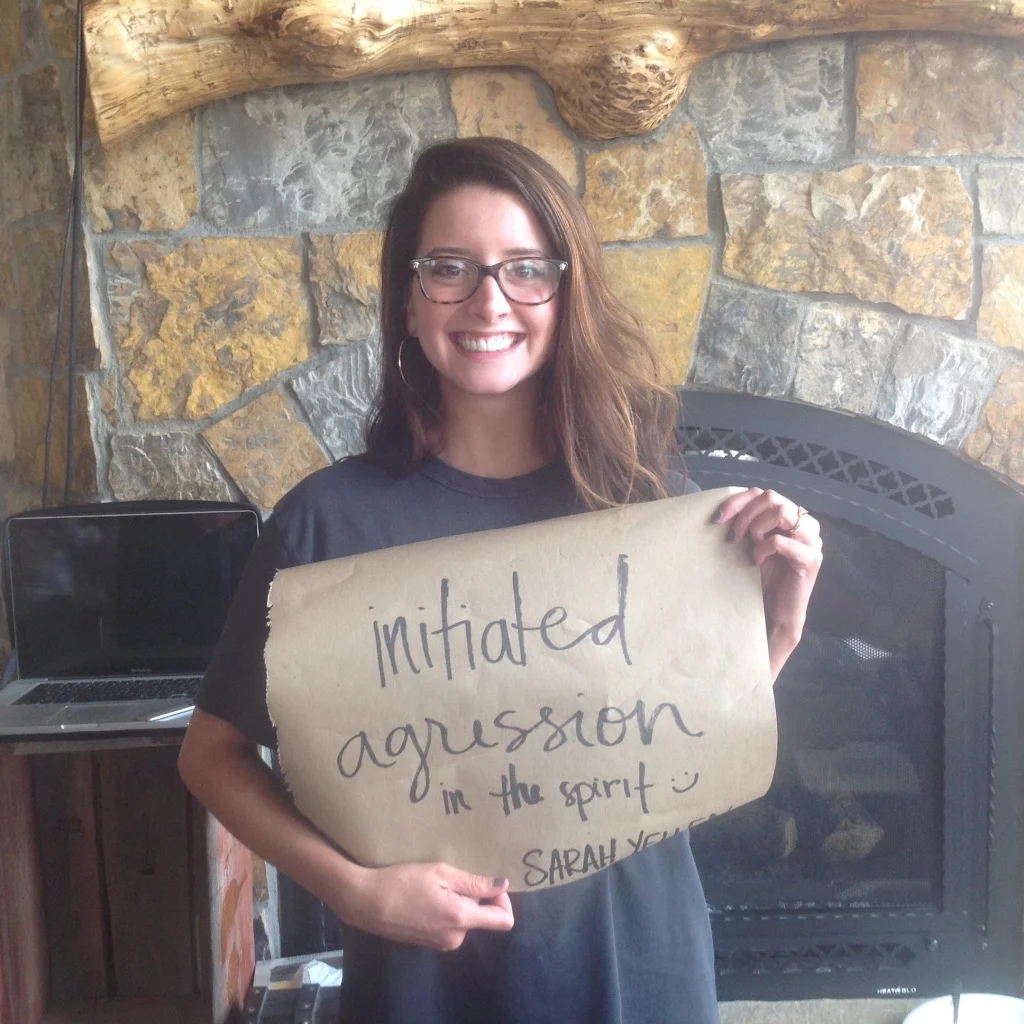 initiated
agression
in the spirit :)
SARAH
HEAT & GLO